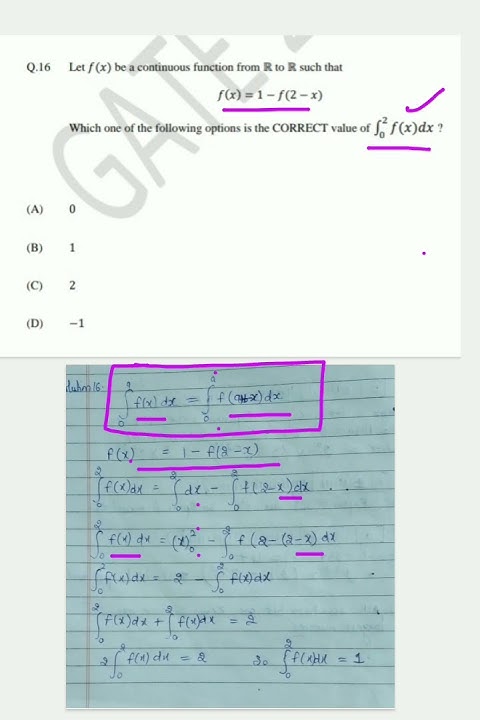 GATE 2
Q.16 Let f(x) be a continuous function from ℝ to ℝ such that
f(x) = 1 − f(2 − x)
Which one of the following options is the CORRECT value of ∫₀² f(x)dx ?
(A) 0
(B) 1
(C) 2
(D) −1
16.
∫₀² f(x) dx = ∫₀ᵃ f(a-x) dx
f(x) = 1 − f(2−x)
∫₀² f(x)dx = ∫₀² dx − ∫₀² f(2−x) dx
∫₀² f(x) dx = (x)₀² − ∫₀² f(2−(2−x) dx
∫₀² f(x)dx = 2 − ∫₀² f(x)dx
∫₀² f(x)dx + ∫₀² f(x)dx = 2
2 ∫₀² f(x) dx = 2 So ∫₀² f(x)dx = 1